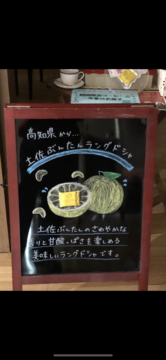 高知県から...
土佐ぶんたんラングドシャ
土佐ぶんたんのさわやかな
香りと甘酸っぱさを楽しめる
美味しいラングドシャです。